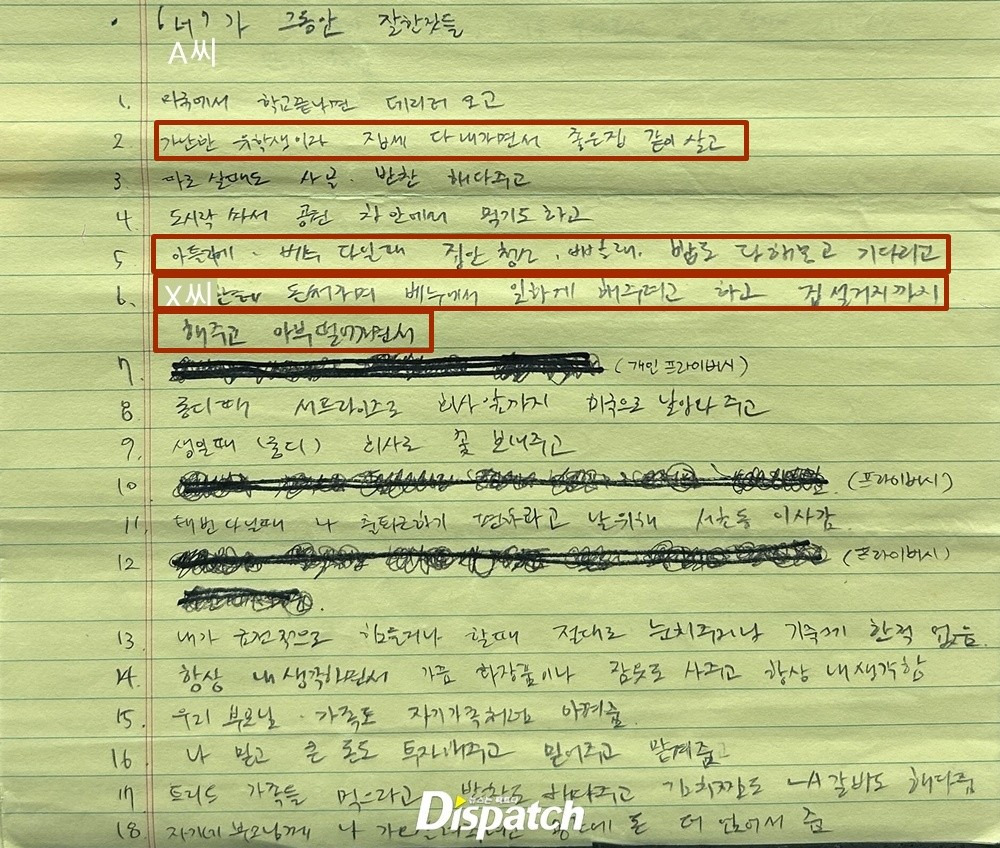 · 너가 그동안 잘한것들
A씨
1. 미국에서 학교끝나면 데리러 오고
2 가난한 유학생이라 집세 다 내가면서 좋은집 같이 살고
3. 따로 살때도 사골. 반찬 해다주고
4. 도시락 싸서 공원 차안에서 먹기도 하고
5 베쓰 다닐때 집안 청소, 빨래. 밥도 다해놓고 기다리고
6. X씨한테 돈써가며 베쓰에서 일하게 해주려고 하고 집 설거지까지
해주고 아부떨어가면서
7. (개인 프라이버시)
8 롱디때 서프라이즈로 회사앞까지 미국으로 날아와 주고
9. 생일때 (롱디) 회사로 꽃 보내주고
10 (프라이버시)
11. 다닐때 나 출퇴근하기 편하라고 날위해 서초동 이사감.
12 (프라이버시)
13 내가 금전적으로 힘들거나 할때 절대로 눈치주거나 기죽게 한적 없음.
14. 항상 내생각하면서 가끔 화장품이나 잠옷도 사주고 항상 내생각함
15. 우리 부모님. 가족도 자기가족처럼 아껴줌.
16 나 믿고 큰 돈도 투자해주고 믿어주고 맡겨줌
17 가족들 먹으라고 반찬도 해다주고 김치찜도 LA갈비도 해다줌
18. 자기네 부모님께 나 돈 더 얹어서 줌
뉴스는 팩트다
Dispatch